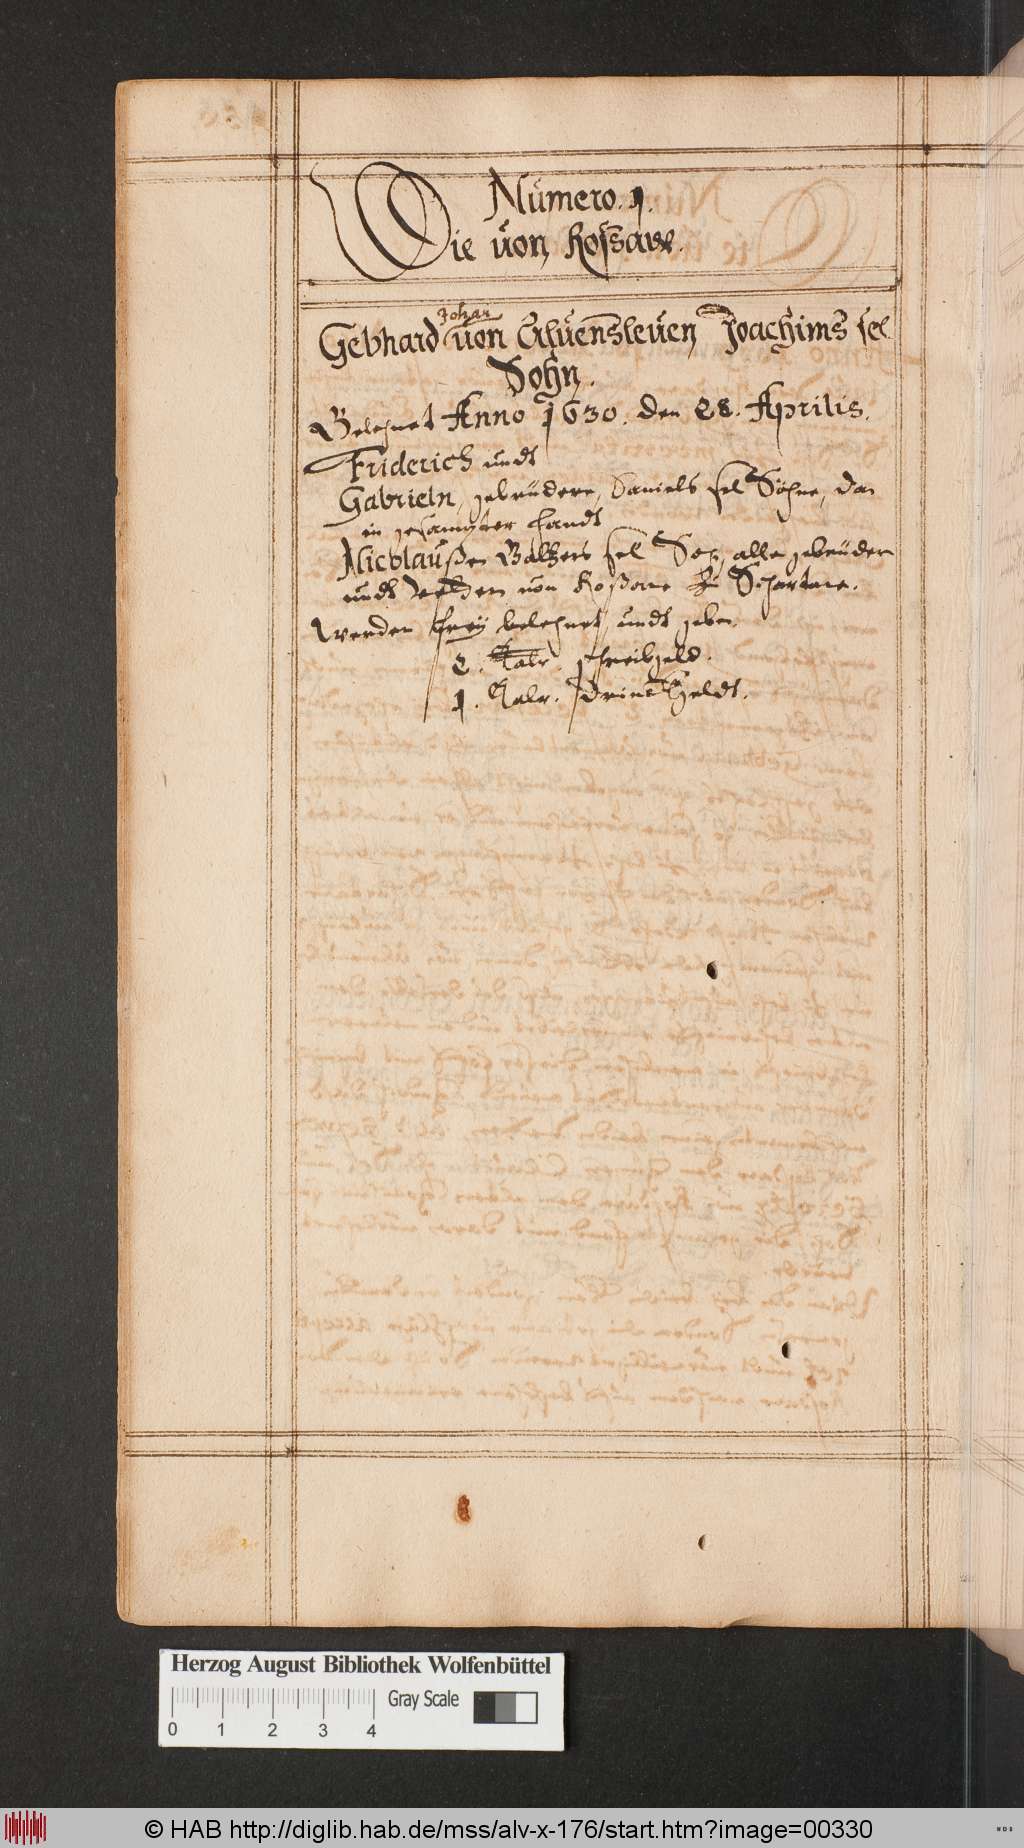 Numero. 1.
Die von Koßaw.
Johan
Gebhard von Alvensleven Joachims sel
Sohn.
Belehnet Anno 1630. den 28. Aprilis.
Friderich undt
Gabrieln, gebrüdere, Daniels sel Söhne, dan
in gesampter handt
Nicolaußen Baltzers sel Soh, alle gebrüder
undt Vettern von Koßaw zu Schartaw.
Werden frey belehnet undt geben.
2. Talr. schreibgeld.
1. Talr. Drinckgeldt.
Herzog August Bibliothek Wolfenbüttel
Gray Scale
0 1 2 3 4
© HAB http://diglib.hab.de/mss/alv-x-176/start.htm?image=00330